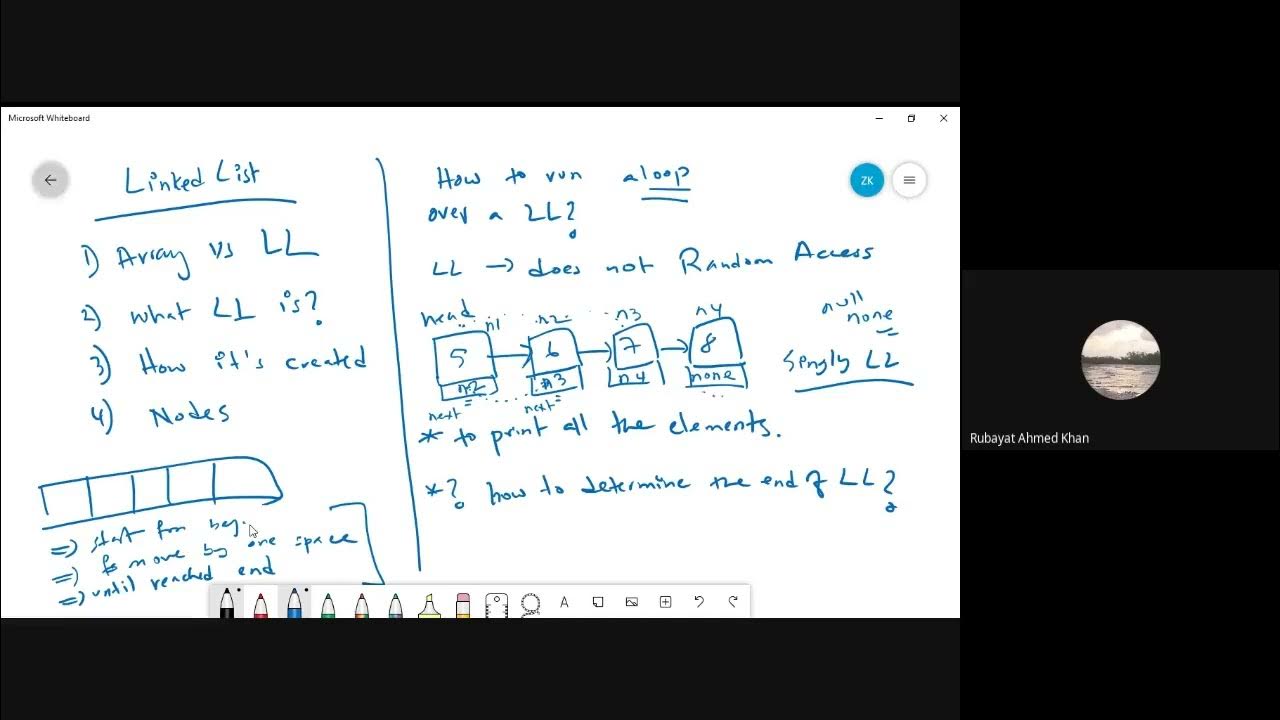 Microsoft Whiteboard
Linked List
1) Array vs LL
2) what LL is?
3) How it's created
4) Nodes
=) start from beg.
=) move by one space
=) until reached end
ZK
How to run a loop
over a LL?
LL → does not Random Access
head n1 n2 n3 n4
5 6 7 8
n2 n3 n4 none
next next
null
none
Singly LL
* to print all the elements.
*? how to determine the end of LL?
A
Rubayat Ahmed Khan